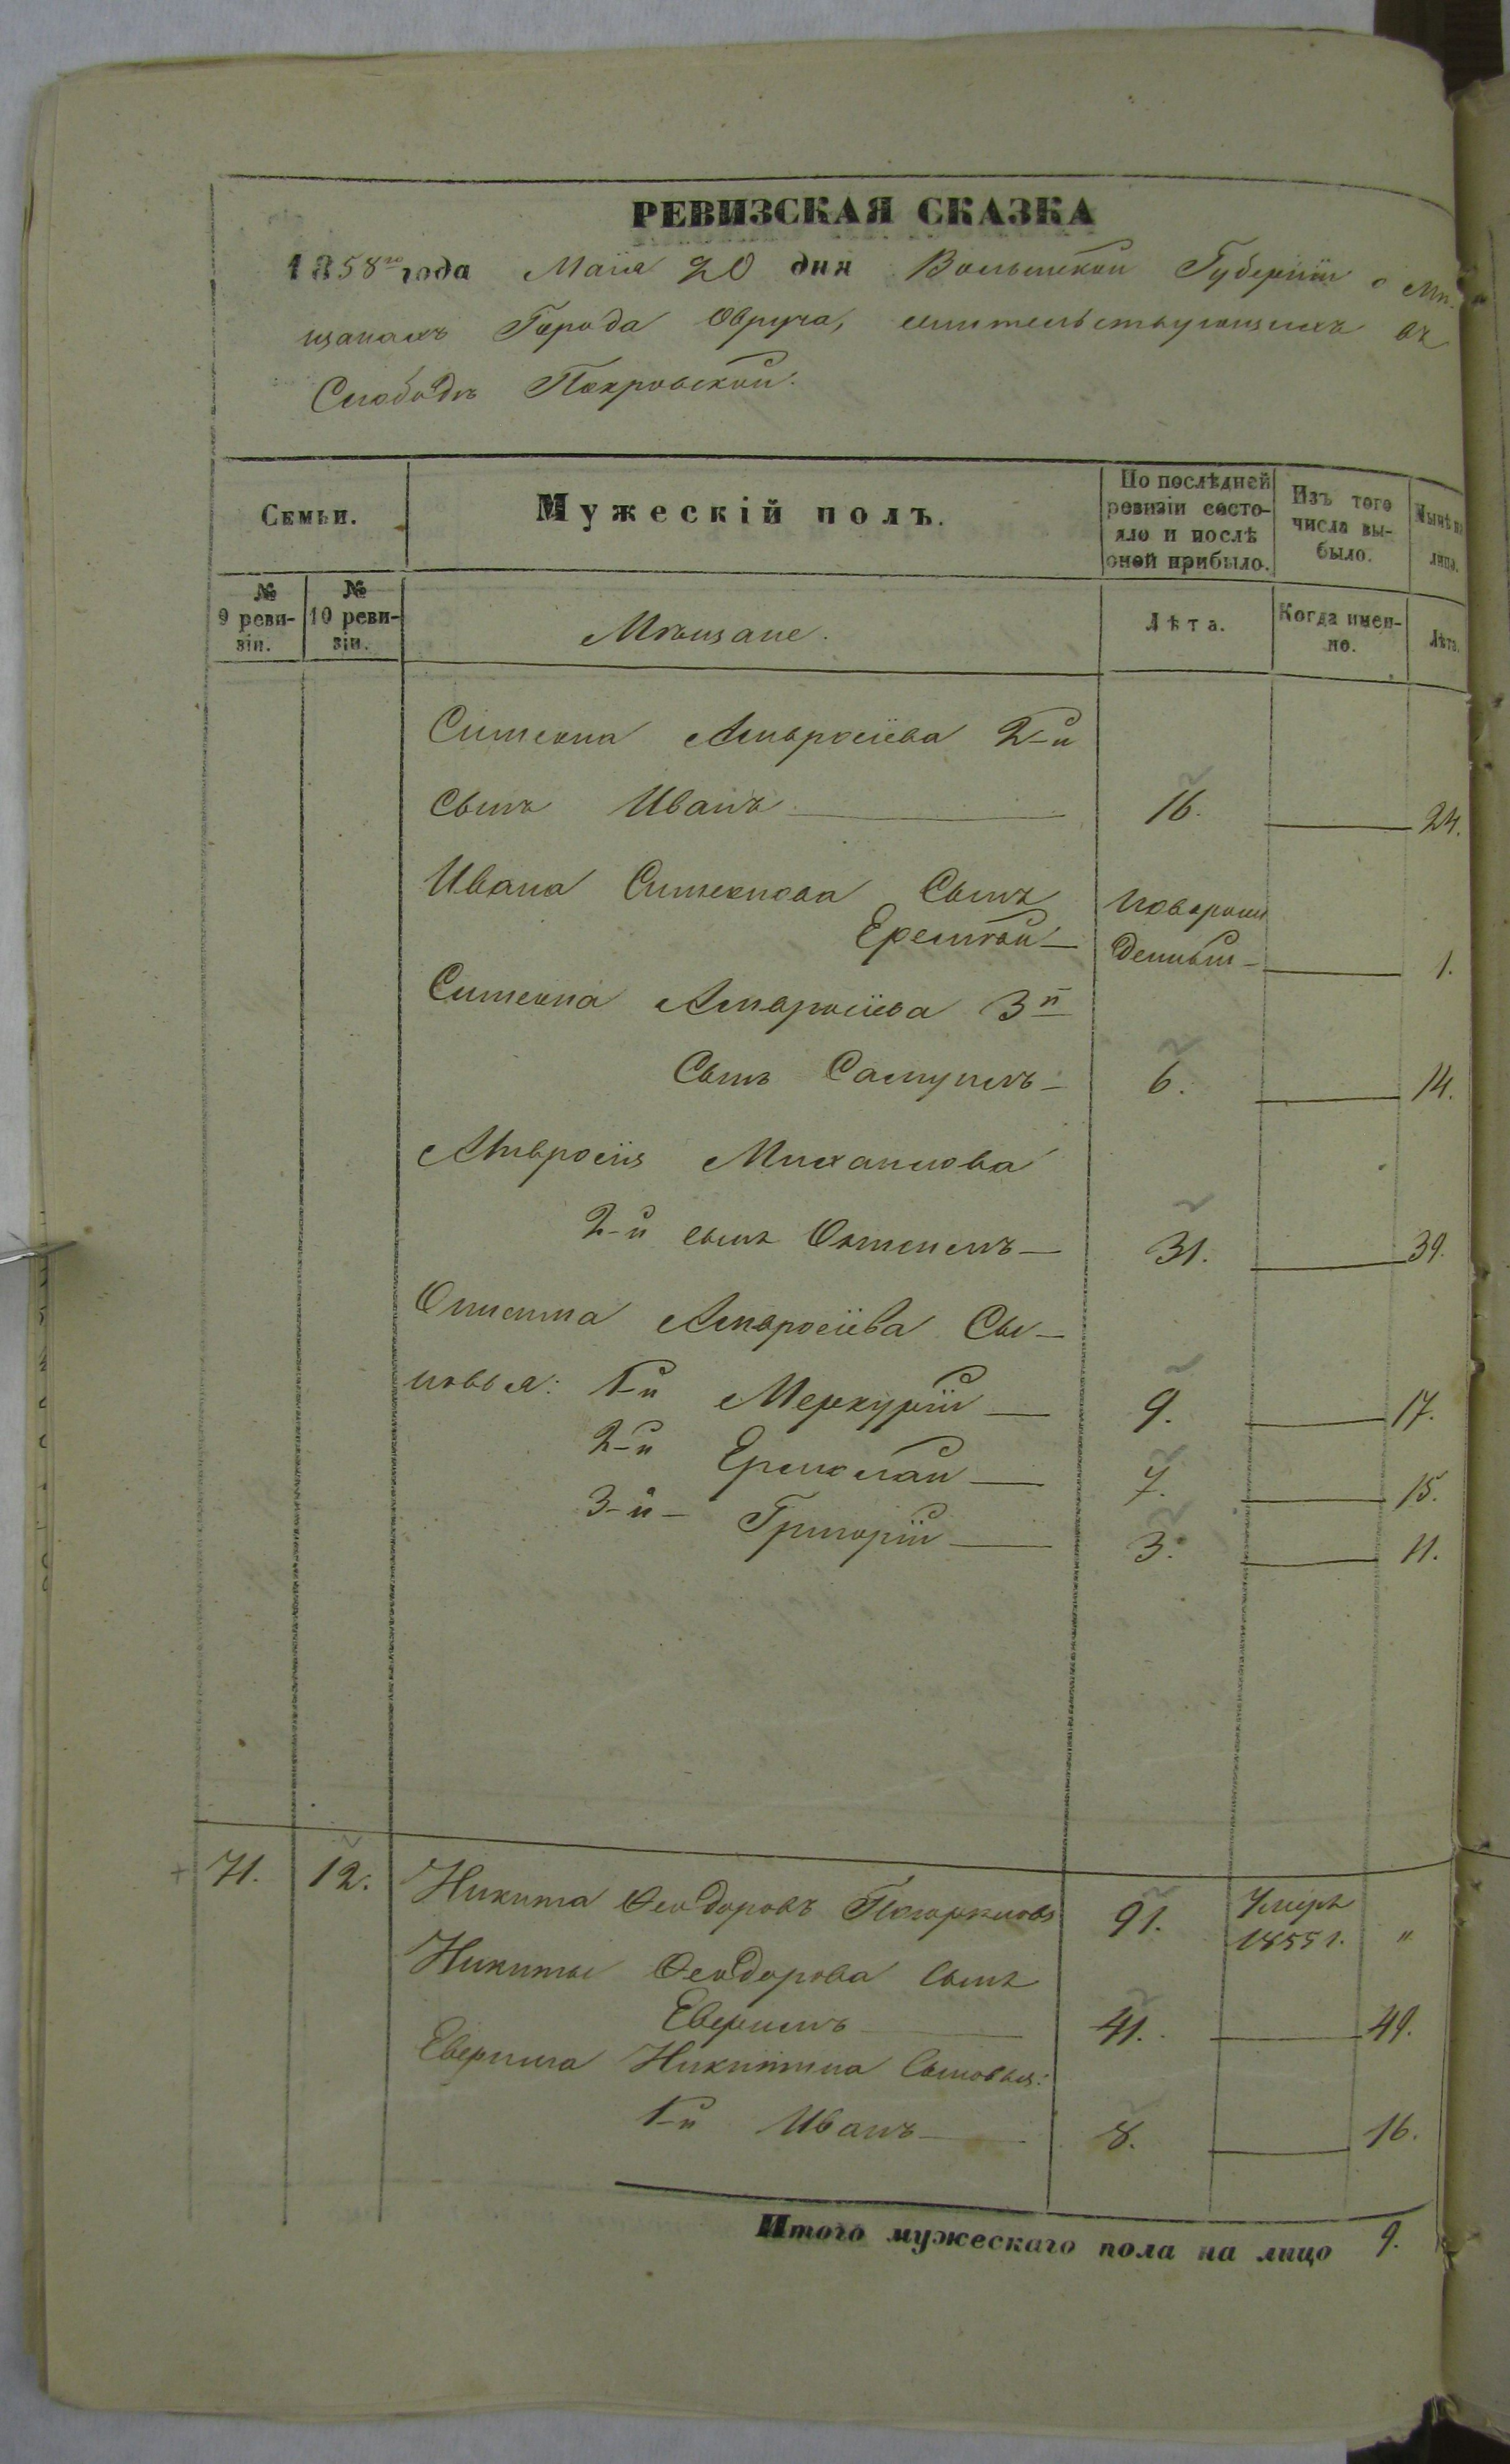 РЕВИЗСКАЯ СКАЗКА
1858го года Маія 20 дня Волынской Губерніи о Мѣ-
щанахъ Города Овруча, жительствующихъ въ
Слободѣ Покровской.
Семьи. Мужескій полъ. По послѣдней ревизіи состояло и послѣ оной прибыло. Изъ того числа выбыло. Нынѣ на лицо.
№ 9 ревизіи. № 10 ревизіи. Мѣщане. Лѣта. Когда именно. Лѣта.
Симеона Амвросіева 2-й
сынъ Иванъ 16. 24.
Ивана Симеонова Сынъ новорож
Еремѣй денный 1.
Симеона Амвросіева 3й
Сынъ Самуилъ 6. 14.
Амвросія Михаилова
2-й сынъ 31. 39.
Амвросіева Сы-
новья: 1-й Меркурій 9. 17.
2-й Ермолай 7. 15.
3-й Григорій 3. 11.
71. 12. Никита Феодоровъ 91. Умеръ
1855 г. "
Никиты Феодорова сынъ
41. 49.
Никитина Сыновья:
1-й Иванъ 8. 16.
Итого мужескаго пола на лицо 9.